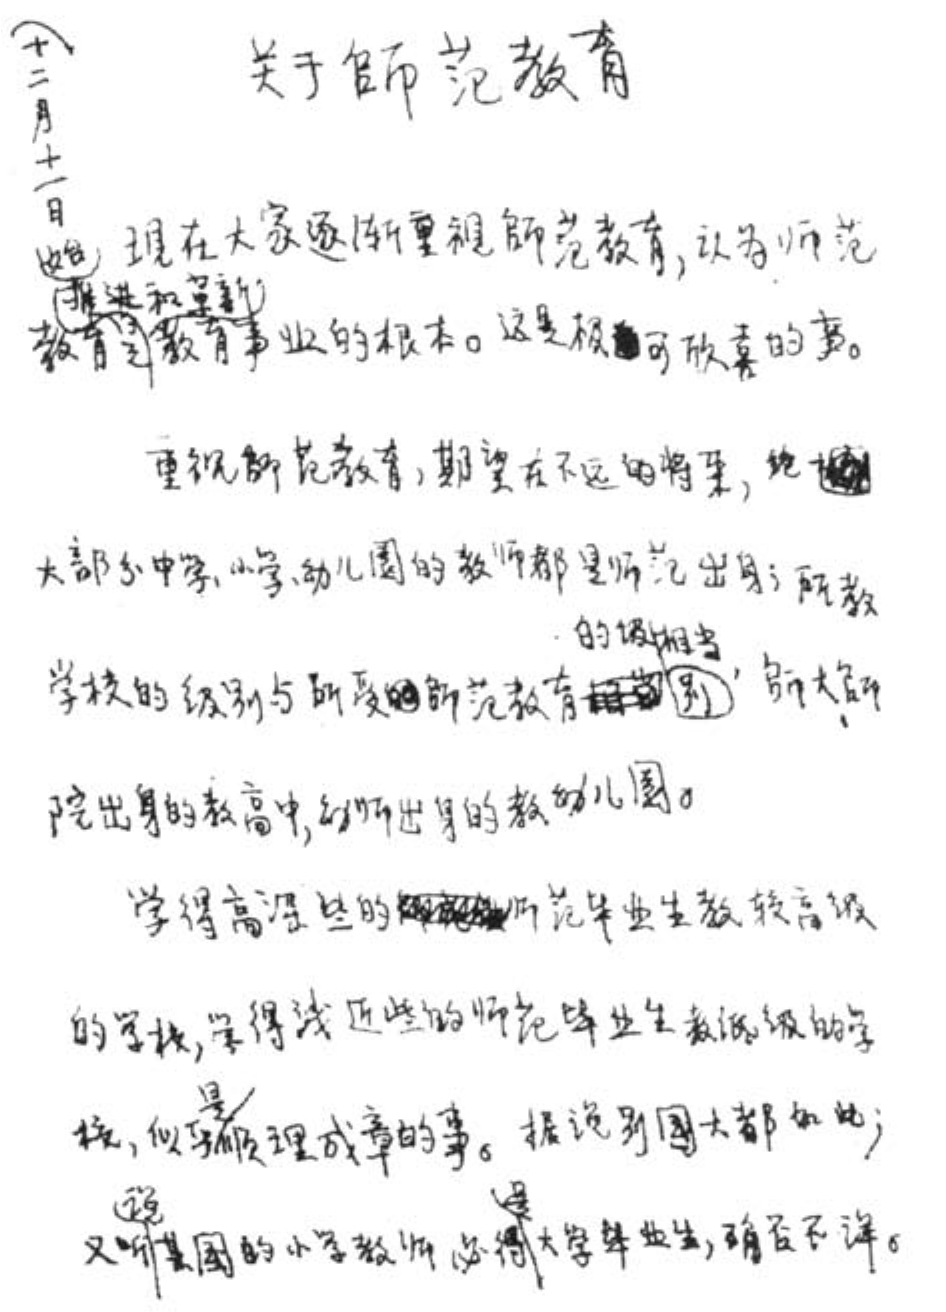 关于师范教育
（十二月十一日始）
现在大家逐渐重视师范教育，认为师范
推进和革新
教育是教育事业的根本。这是极可欣喜的事。
重视师范教育，期望在不远的将来，绝
大部分中学、小学、幼儿园的教师都是师范出身；所教
的级相当
学校的级别与所受师范教育别，师大、师
院出身的教高中，幼师出身的教幼儿园。
学得高深些的师范毕业生教较高级
的学校，学得浅近些的师范毕业生教低级的学
是
校，似乎顺理成章的事。据说别国大都如此；
说 是
又听某国的小学教师必得大学毕业生，确否不详。